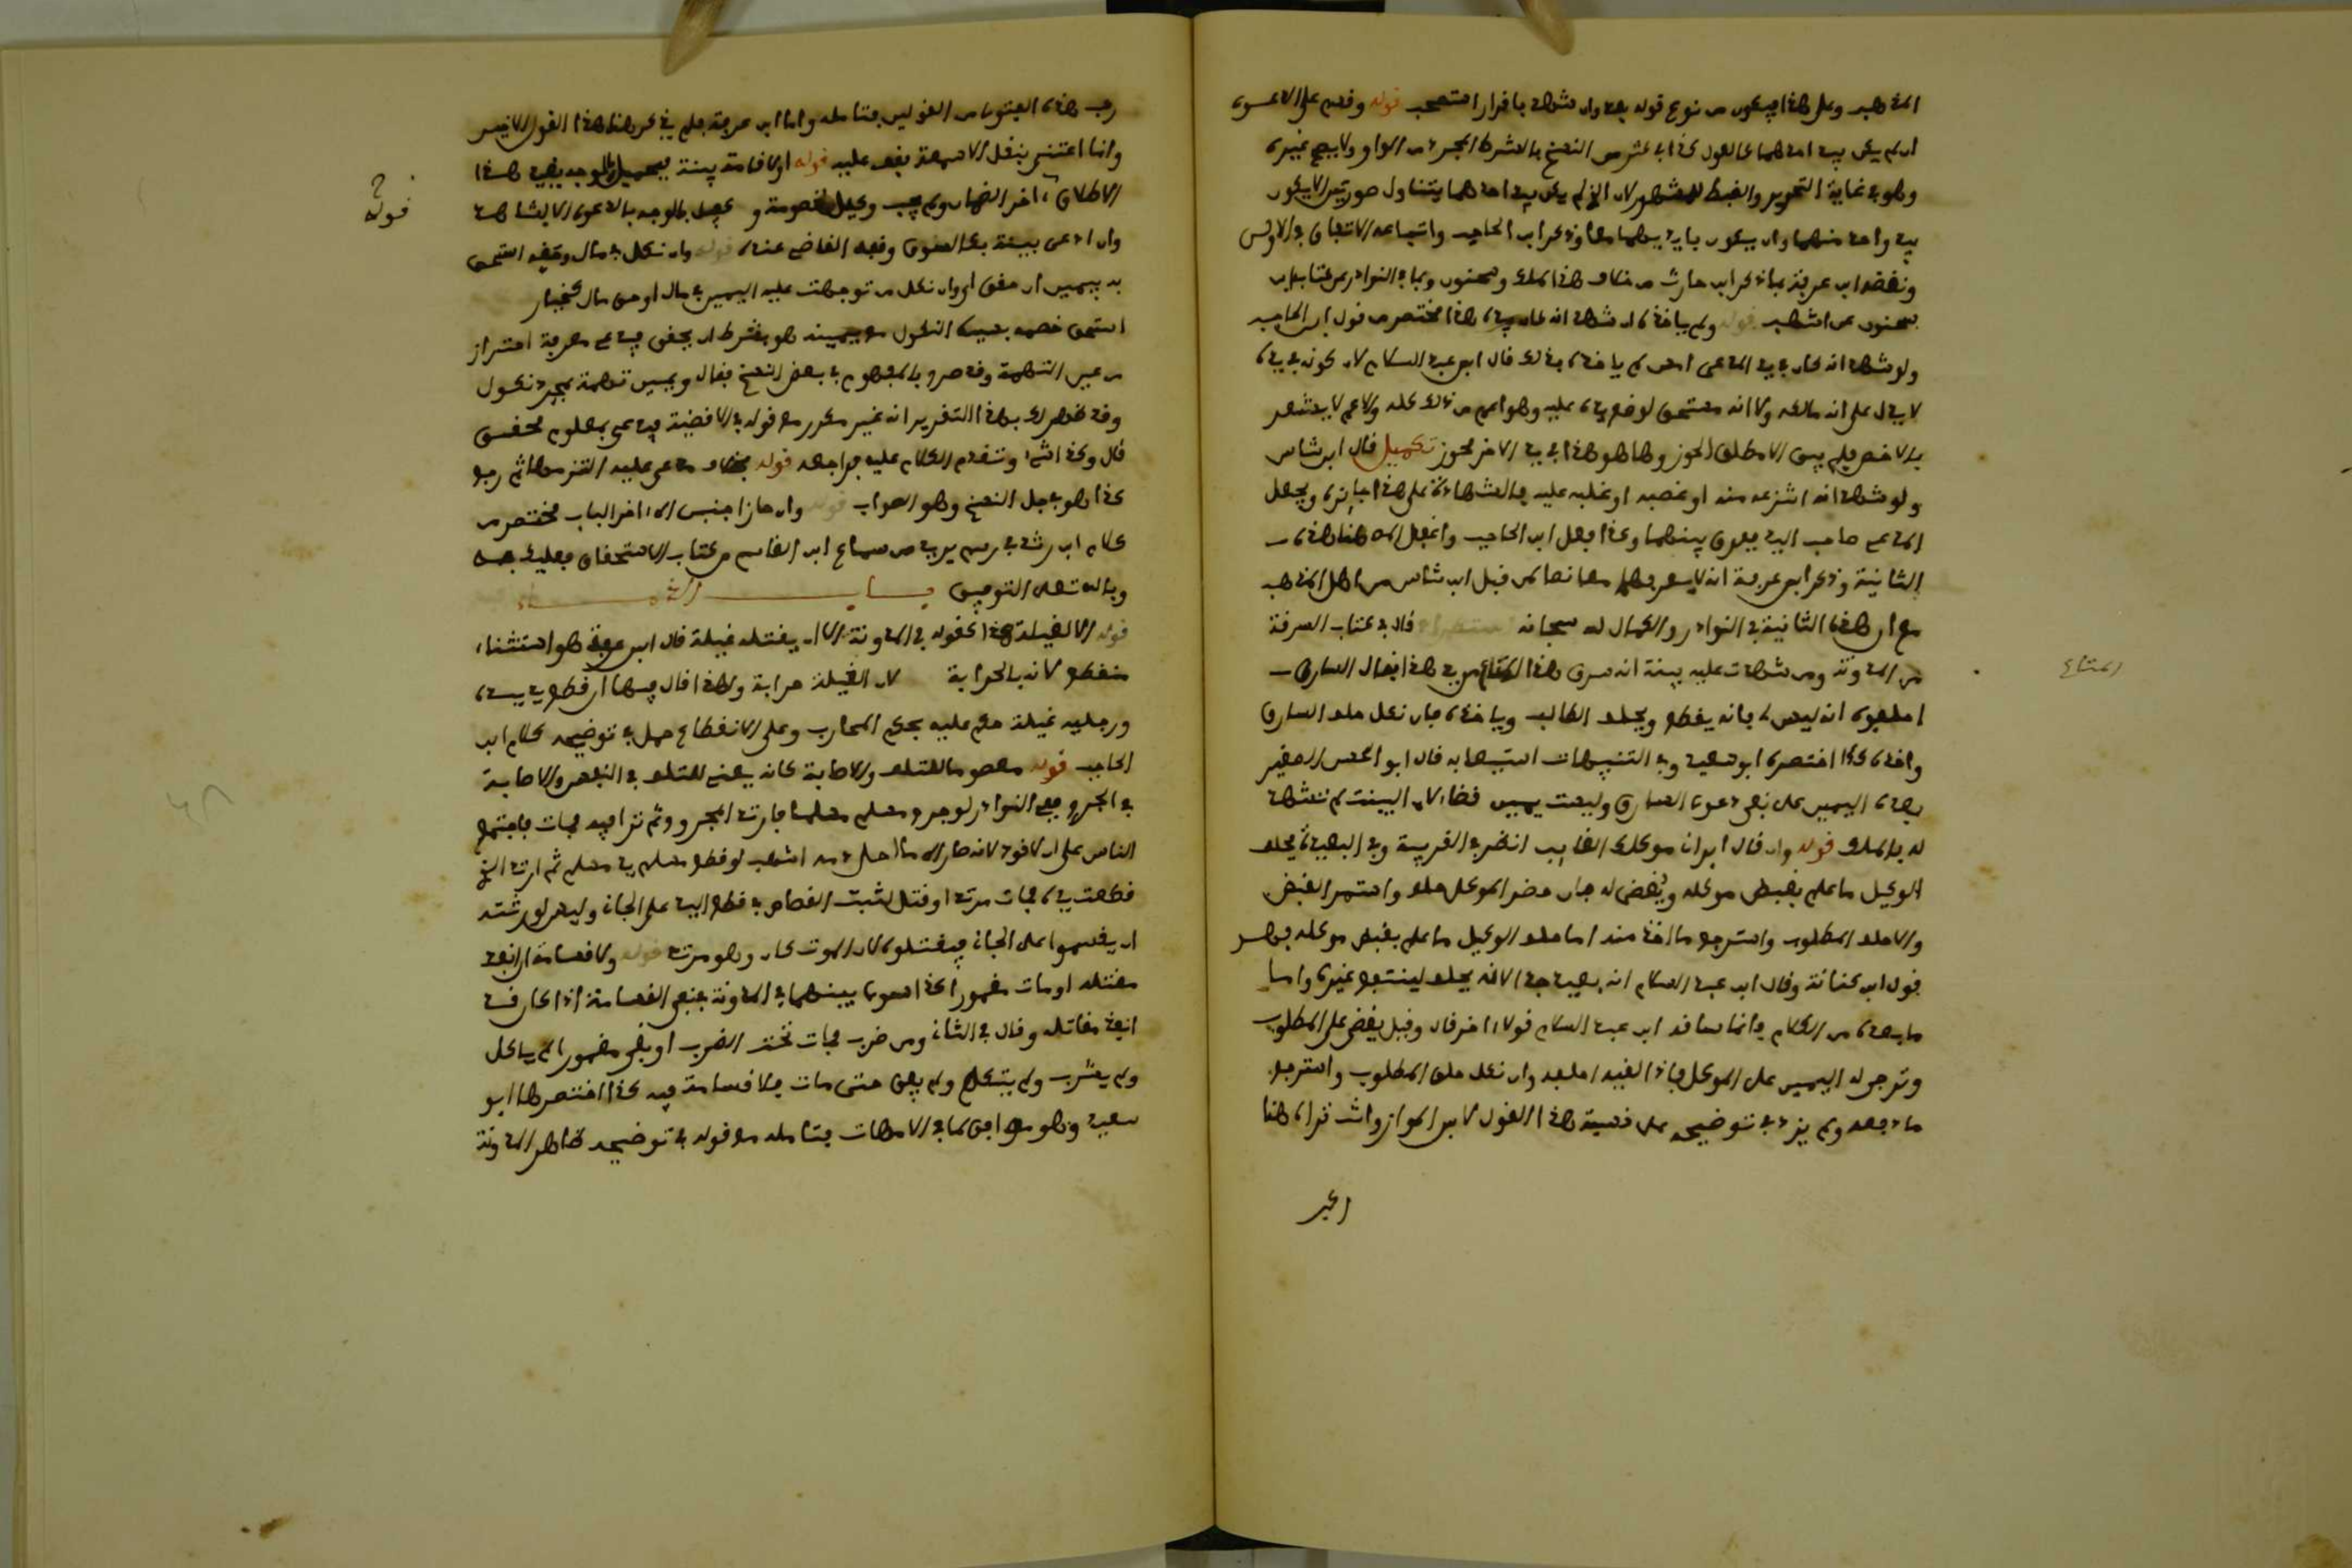 المذهب وعلى هذا فيكون من نوع قوله بعد وان شهد باقرار استصحب قوله وقدم على الدعوى
ان لم يكن بيد احدهما كالحول كذا في عشر من النسخ بالشرط المجرد من الواو ولا يصح غيره
وهو في غاية التحرير والضبط للمشهور لان الذ لم يكن بيد احدهما يتناول صورتين الا يكون
بيد واحد منهما وان يكون بايديهما معا وذكر ابن الحاجب واتباعه الاتفاق في الاولى
ونقضه ابن عرفة بما ذكر ابن حارث من خلاف هذا الملك وسحنون وبما في النوادر من كتاب ابن
سحنون عن اشهب قوله ولم ياخذه ان شهد انه كان بيده هذا مختصر من قول ابن الحاجب
ولو شهد انه كان في يد المدعي امس لم ياخذه بذلك قال ابن عبد السلام لان كونه في يده
لا يدل على انه مالكه ولا انه مستحق لوضع يده عليه وهو اعم من ذلك كله والاعم لا يشعر
بالاخص فلم يبق الا مطلق الحوز وها هو هذا في يد الاخر بحوز تكميل قال ابن شاس
ولو شهد انه انتزعه منه او غصبه او غلبه عليه فالشهادة على هذا جائزة ويجعل
المدعي صاحب اليد فيفرق بينهما وكذا فعل ابن الحاجب واغفل المص هنا هذه
الثانية وذكر ابن عرفة انه لا يعرفهما معا نصا لمن قبل ابن شاس من اهل المذهب
مع ان هذه الثانية في النوادر والكمال لله سبحانه استطراد قال في كتاب السرقة
من المدونة ومن شهدت عليه بينة انه سرق هذا المتاع من يد هذا فقال السارق
احلفوه انه ليس لي فانه يقطع ويحلف الطالب وياخذه فان نكل حلف السارق
واخذه كذا اختصره ابو سعيد وفي التنبيهات استيعابه قال ابو الحسن الصغير
بعده اليمين على نفي دعوى السارق وليست يمين قضاء لان البينة لم تشهد
له بالملك قوله وان قال ابراني موكلك الغائب انظر في القريبة وفي البعيدة يحلف
الوكيل ما علم بقبض موكله ويقضى له فان حضر الموكل حلف واستمر القبض
والا حلف المطلوب واسترجع ما اخذ منه اما حلف الوكيل ما علم بقبض موكله فهو
قول ابن كنانة وقال ابن عبد السلام انه بعيد جدا لانه يحلف لينتفع غيره واما
ما بعده من الكلام فانما ساقه ابن عبد السلام قولا اخر قال وقيل يقضى على المطلوب
وترجى له اليمين على الموكل فاذا لقيه احلفه وان نكل حلف المطلوب واسترجع
ما دفعه ولم يزد في توضيحه على نسبة هذا القول لابن المواز وانت تراه هنا
المتاع
رجب هذه الفتوى من القولين فتامله واما ابن عرفة فلم يذكر هنا هذا القول الاخير
وانما اعتنى بنقل الاسمعة فقف عليه قوله او لاقامة بينة فبحميل بالوجه يريد هذا
الاطلاق اخر الضمان ولم يجب وكيل لخصومة ولا كفيل بالوجه بالدعوى الا بشاهد
وان ادعى بينة بكالسوق وقفه القاضي عنده قوله وان نكل في مال وحقه استحق
به بيمين ان حقق اي وان نكل من توجهت عليه اليمين في مال او حق مال كخيار
استحق خصمه بسبب النكول مع يمينه هو بشرط ان يحقق فيدعي معرفة احترازا
من غير التهمة وقد صرح بالمفهوم في بعض النسخ فقال ويمين تهمة بمجرد نكول
وقد ظهر لك بهذا التقرير انه غير مكرر مع قوله في الاقضية فيدعي بمعلوم محقق
قال وكذا شيء وتقدم الكلام عليه فراجعه قوله بخلاف مدعى عليه التزمها ثم رجع
كذا هو في جل النسخ وهو الصواب قوله وان حاز اجنبي الى اخر الباب مختصر من
كلام ابن رشد في رسم يريد من سماع ابن القاسم من كتاب الاستحقاق فعليك به
وبالله تعلى التوفيق بـــــاب الدمـــــاء
قوله الا لغيلة هذا كقوله في المدونة الا ان يقتله غيلة قال ابن عرفة هو استثناء
منقطع لانه بالحرابة لان الغيلة حرابة ولهذا قال فيها ان قطع يديه
ورجليه غيلة حكم عليه بحكم المحارب وعلى الانقطاع حمل في توضيحه كلام ابن
الحاجب قوله معصوما للتلف والاصابة كانه يعني للتلف في النفس والاصابة
في الجرح ففي النوادر لو جرح مسلم مسلما فارتد المجروح ثم نزا فيه فمات فاجتمع
الناس على ان لا قود لانه صار الى ما احل دمه اشهب لو قطع مسلم يد مسلم ثم ارتد الذي
قطعت يده فمات مرتدا او قتل لثبت القصاص في قطع اليد على الجاني وليس لورثته
ان يقسموا على الجاني فيقتلوه لان الموت كان وهو مرتد قوله ولا قسامة ان انفذ
مقتله او مات مغمورا كذا سوى بينهما في المدونة فنفى القسامة اذا كان قد
انفذ مقاتله وقال في الثاني ومن ضرب فمات تحت الضرب او بقي مغمورا لم ياكل
ولم يشرب ولم يتكلم ولم يفق حتى مات فلا قسامة فيه كذا اختصرها ابو
سعيد وهو موافق لما في الامهات فتامله مع قوله في توضيحه ظاهر المدونة
قوله